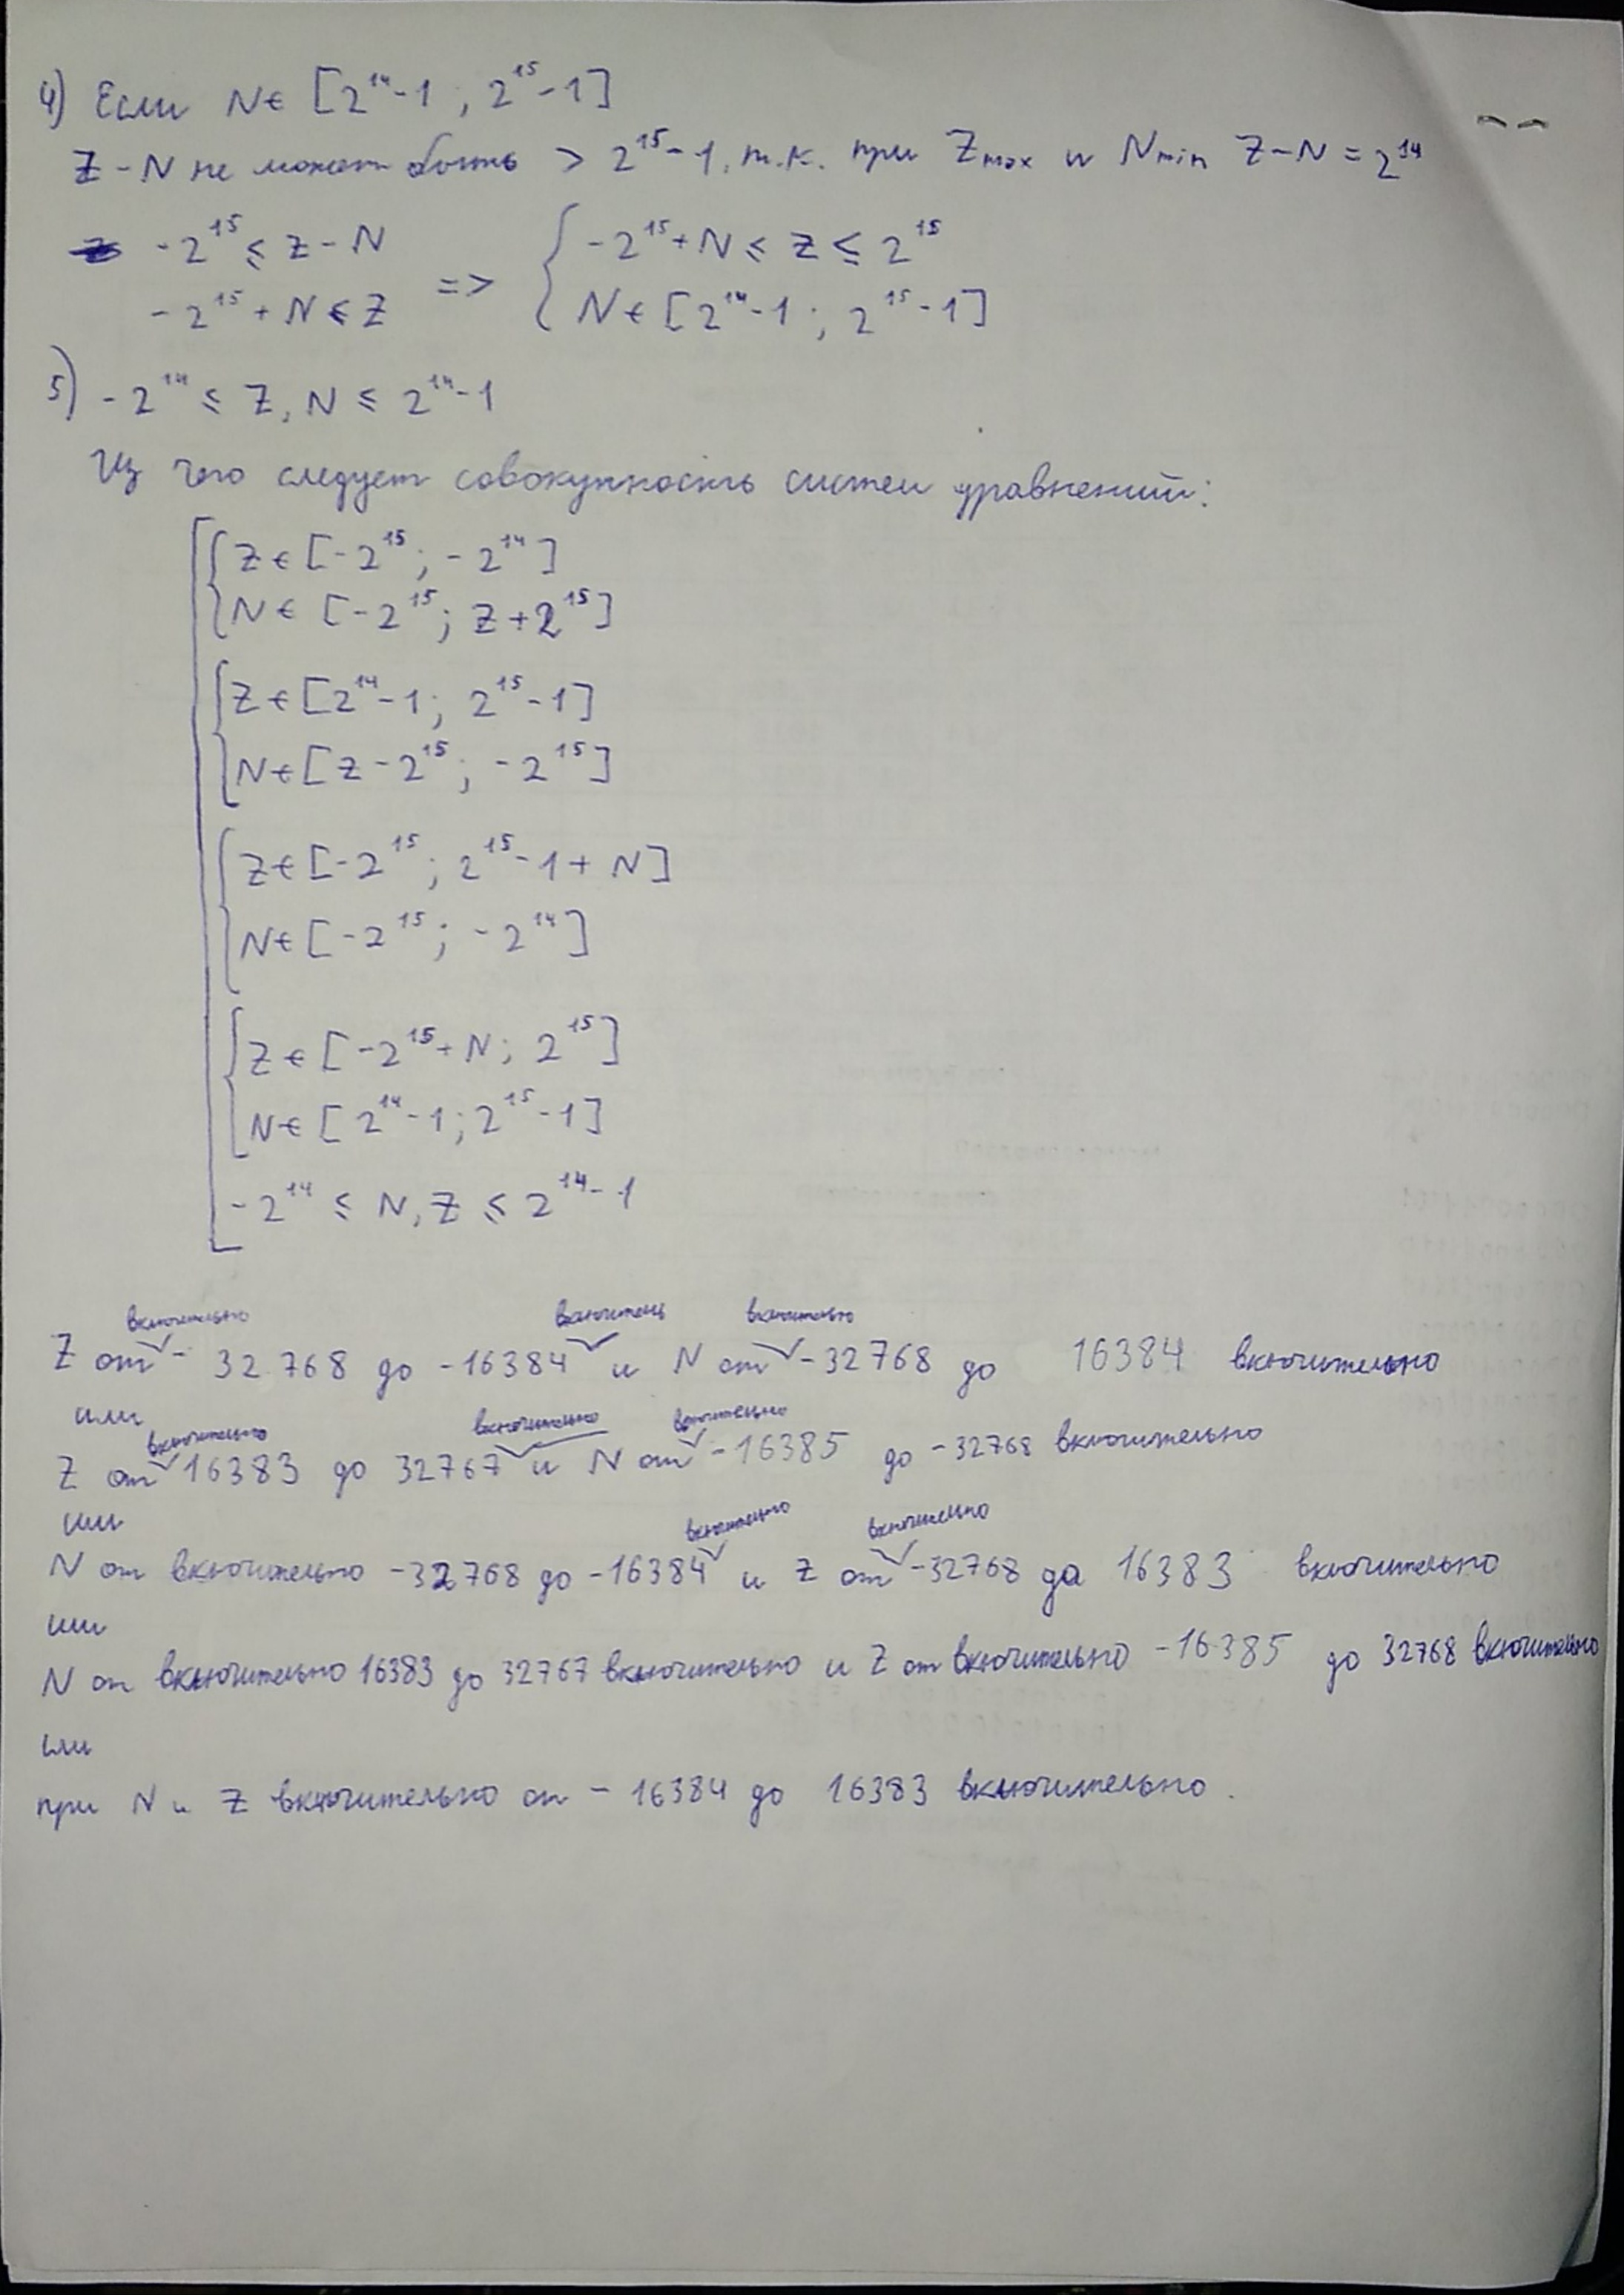 4) Если N ∈ [2¹⁴-1 ; 2¹⁵-1]
Z - N не может быть > 2¹⁵-1, т.к. при Zmax и Nmin Z-N = 2¹⁴
-2¹⁵ ≤ Z - N
-2¹⁵ + N ≤ Z
=> { -2¹⁵+N ≤ Z ≤ 2¹⁵
N ∈ [2¹⁴-1 ; 2¹⁵-1]
5) -2¹⁴ ≤ Z, N ≤ 2¹⁴-1
Из чего следует совокупность систем уравнений:
Z ∈ [-2¹⁵ ; -2¹⁴]
N ∈ [-2¹⁵ ; Z+2¹⁵]
Z ∈ [2¹⁴-1 ; 2¹⁵-1]
N ∈ [Z-2¹⁵ ; -2¹⁵]
Z ∈ [-2¹⁵ ; 2¹⁵-1+N]
N ∈ [-2¹⁵ ; -2¹⁴]
Z ∈ [-2¹⁵+N ; 2¹⁵]
N ∈ [2¹⁴-1 ; 2¹⁵-1]
-2¹⁴ ≤ N, Z ≤ 2¹⁴-1
Z от включительно -32768 до -16384 включитель и N от включительно -32768 до 16384 включительно
или
Z от включительно 16383 до 32767 включительно и N от включительно -16385 до -32768 включительно
или
N от включительно -32768 до -16384 включительно и Z от включительно -32768 да 16383 включительно
или
N от включительно 16383 до 32767 включительно и Z от включительно -16385 до 32768 включительно
или
при N и Z включительно от -16384 до 16383 включительно.